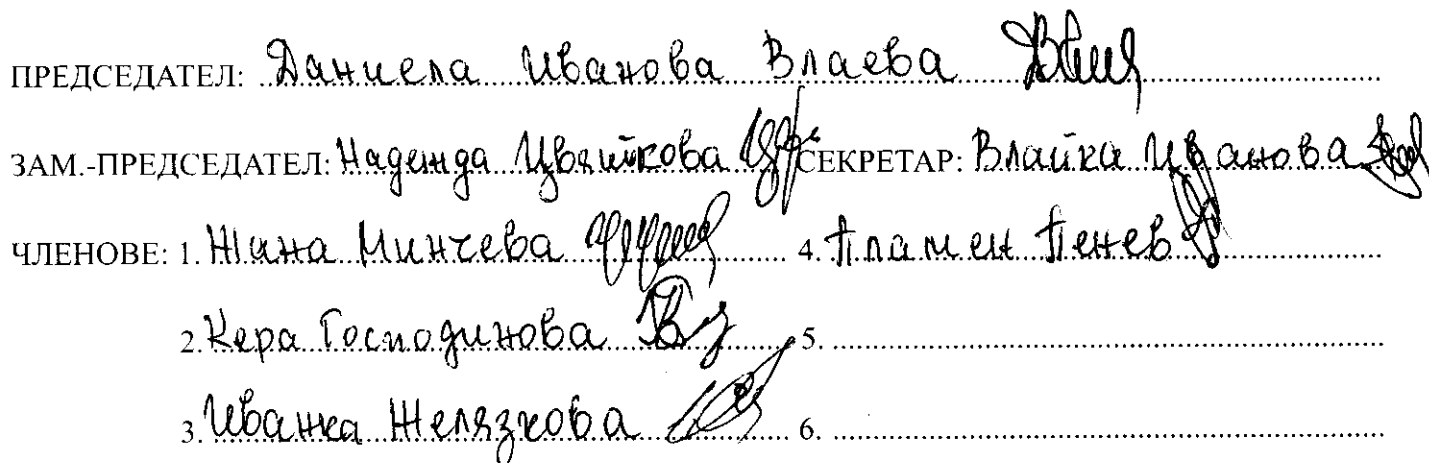 ПРЕДСЕДАТЕЛ: Даниела Иванова Влаева
ЗАМ.-ПРЕДСЕДАТЕЛ: Надежда Цвяткова СЕКРЕТАР: Влайка Иванова
ЧЛЕНОВЕ: 1. Жана Минчева 4. Пламен Пенев
2. Кера Господинова 5.
3. Иванка Желязкова 6.